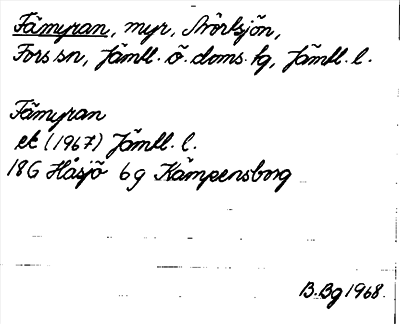 Fämyran, myr, Strörlsjön,
Fors sn, Jämtl. ö. doms. hg, Jämtl. l.
Fämyran
ek (1967) Jämtl. l.
18G Håsjö 6g Kämpensborg
B.Bg 1968.